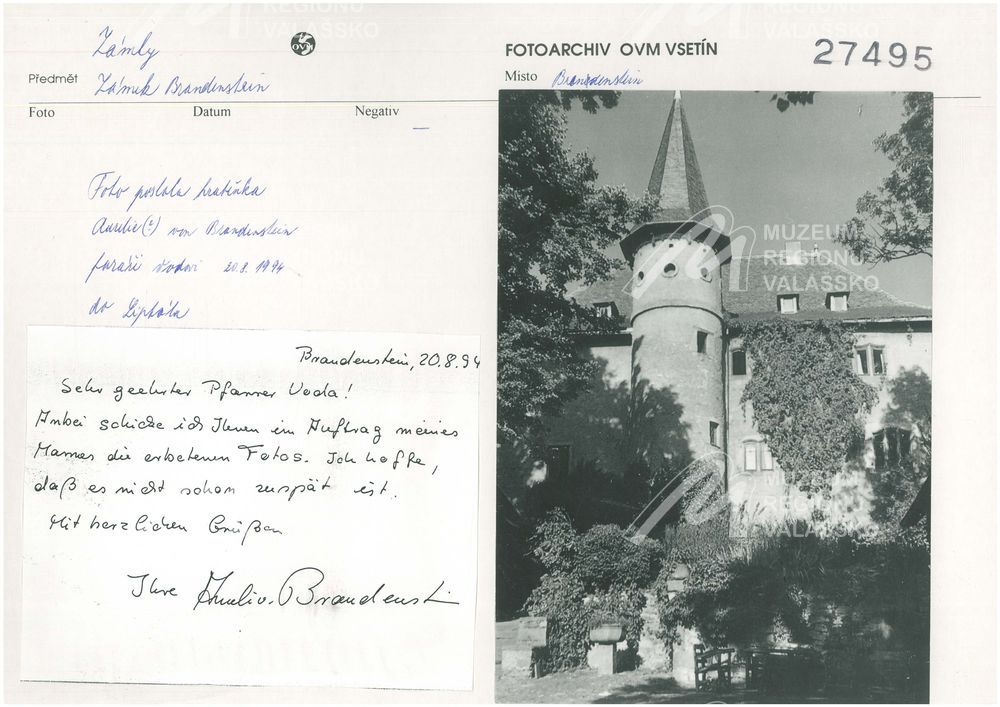 Zámky
OVM
Předmět Zámek Brandenstein
Foto Datum Negativ
FOTOARCHIV OVM VSETÍN 27495
Misto Brandenstein
Foto poslala hraběnka
Aurelie(?) von Brandenstein
faráři Vodovi 20.8. 1994
do Liptála
Brandenstein, 20.8.94
Sehr geehrter Pfarrer Voda!
Anbei schicke ich Ihnen im Auftrag meines
Mannes die erbetenen Fotos. Ich hoffe,
daß es nicht schon zuspät ist.
Mit herzlichen Grüßen
Ihre v. Brandenstein
MUZEUM
REGIONU
VALAŠSKO
MUZEUM
REGIONU
VALAŠSKO
MUZEUM
REGIONU
VALAŠSKO